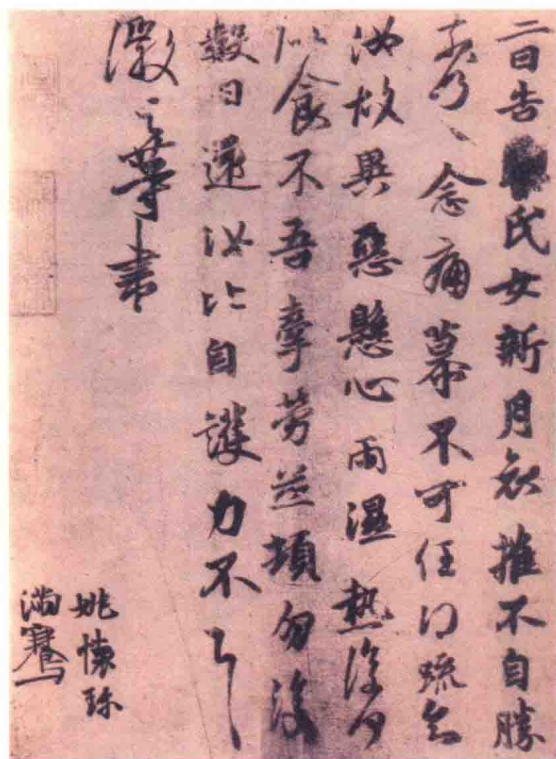 二日告氏女新月哀摧不自勝
奈何〻念痛慕不可任得疏知
汝故異惡懸心雨濕熱復何
似食不吾牽勞並頓勿復
數日還汝比自護力不具
徽之等書
姚懷珍
滿騫